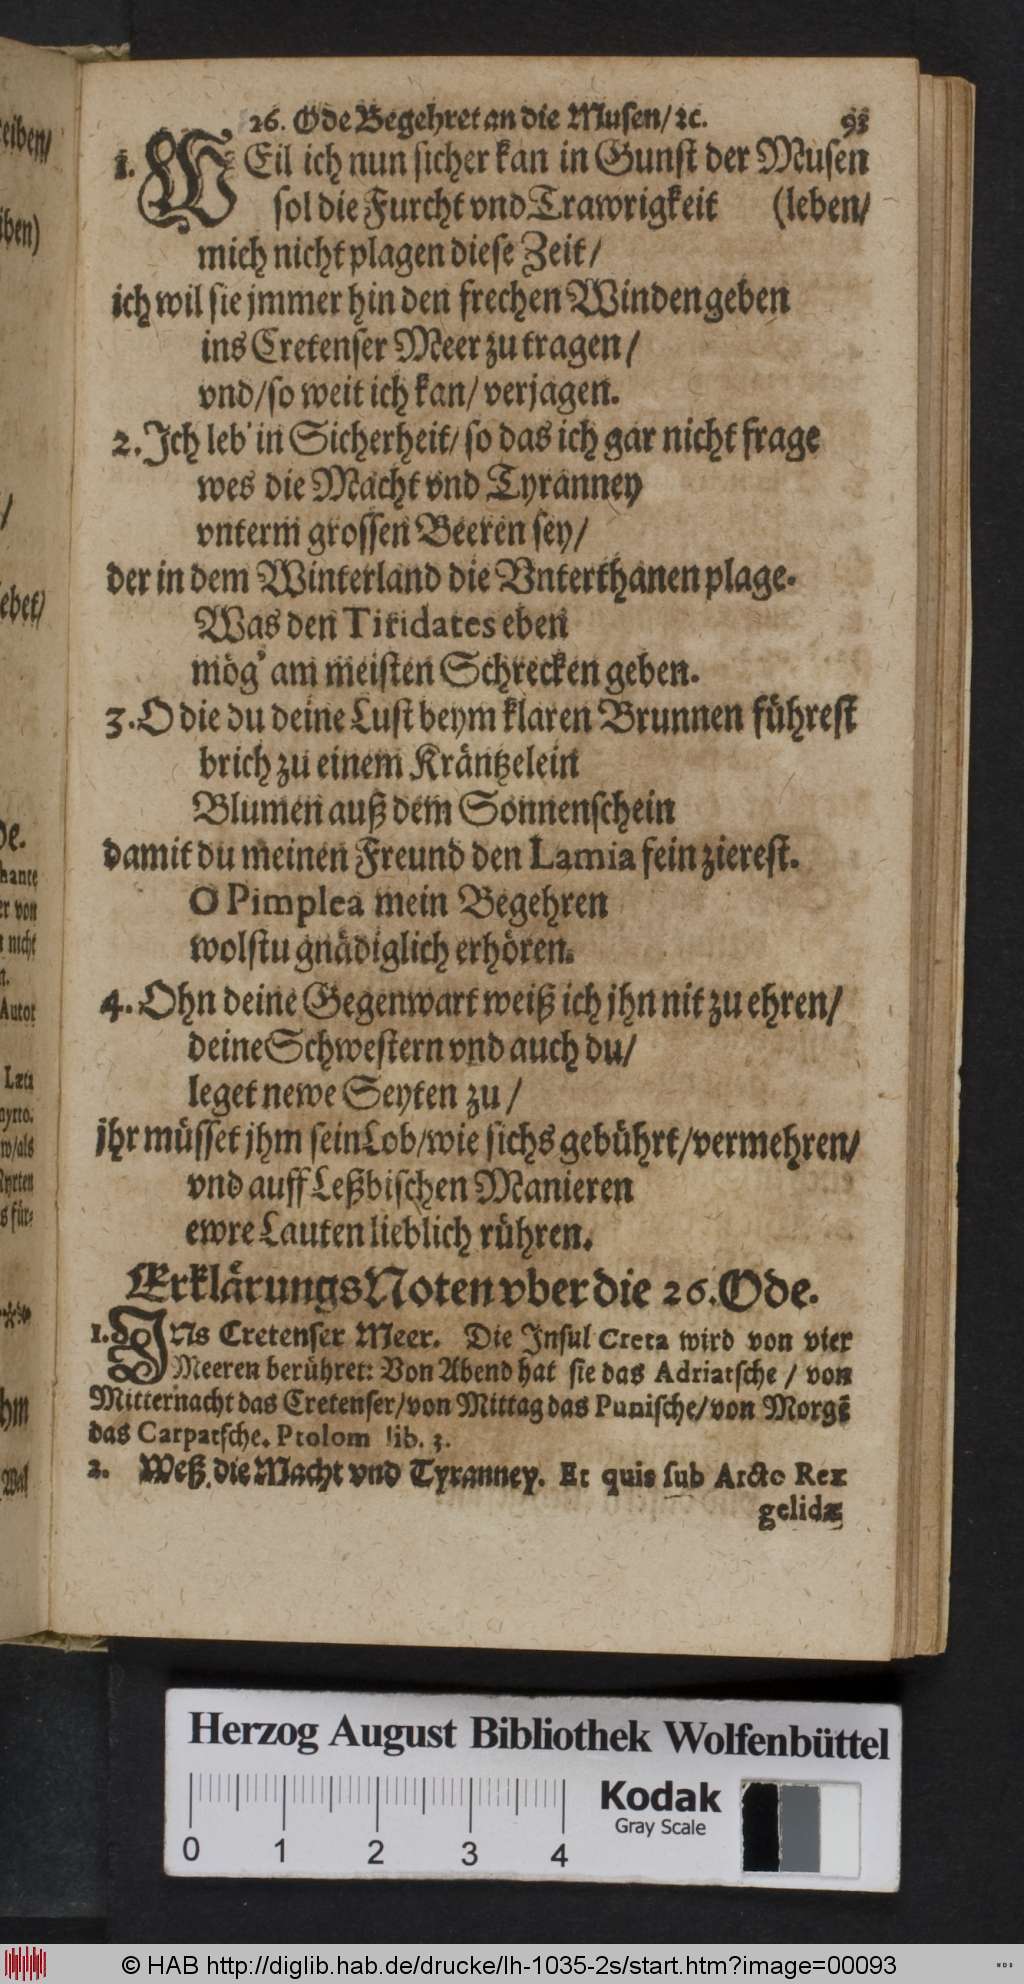 26. Ode Begehret an die Musen/ ꝛc. 93
1. WEil ich nun sicher kan in Gunst der Musen
sol die Furcht vnd Trawrigkeit (leben/
mich nicht plagen diese Zeit/
ich wil sie jmmer hin den frechen Winden geben
ins Cretenser Meer zu tragen/
vnd/ so weit ich kan/ verjagen.
2. Ich leb' in Sicherheit/ so das ich gar nicht frage
wes die Macht vnd Tyranney
vnterm grossen Beeren sey/
der in dem Winterland die Vnterthanen plage.
Was den Tiridates eben
mög' am meisten Schrecken geben.
3. O die du deine Lust beym klaren Brunnen führest
brich zu einem Kräntzelein
Blumen auß dem Sonnenschein
damit du meinen Freund den Lamia fein zierest.
O Pimplea mein Begehren
wolstu gnädiglich erhören.
4. Ohn deine Gegenwart weiß ich jhn nit zu ehren/
deine Schwestern vnd auch du/
leget newe Seyten zu/
jhr müsset jhm sein Lob/ wie sichs gebührt/ vermehren/
vnd auff Leßbischen Manieren
ewre Lauten lieblich rühren.
Erklärungs Noten vber die 26. Ode.
1. INs Cretenser Meer. Die Insul Creta wird von vier
Meeren berühret: Von Abend hat sie das Adriatsche/ von
Mitternacht das Cretenser/ von Mittag das Punische/ von Morgẽ
das Carpatsche. Ptolom lib. 3.
2. Weß die Macht vnd Tyranney. Et quis sub Arcto Rex
gelidæ
eiben/
iben)
/
ebet/
de.
hante
er von
nicht
n.
Autor
Læta
myrto.
w/als
Myrten
s für-
hm
Wel
Herzog August Bibliothek Wolfenbüttel
Kodak
Gray Scale
0 1 2 3 4
© HAB http://diglib.hab.de/drucke/lh-1035-2s/start.htm?image=00093